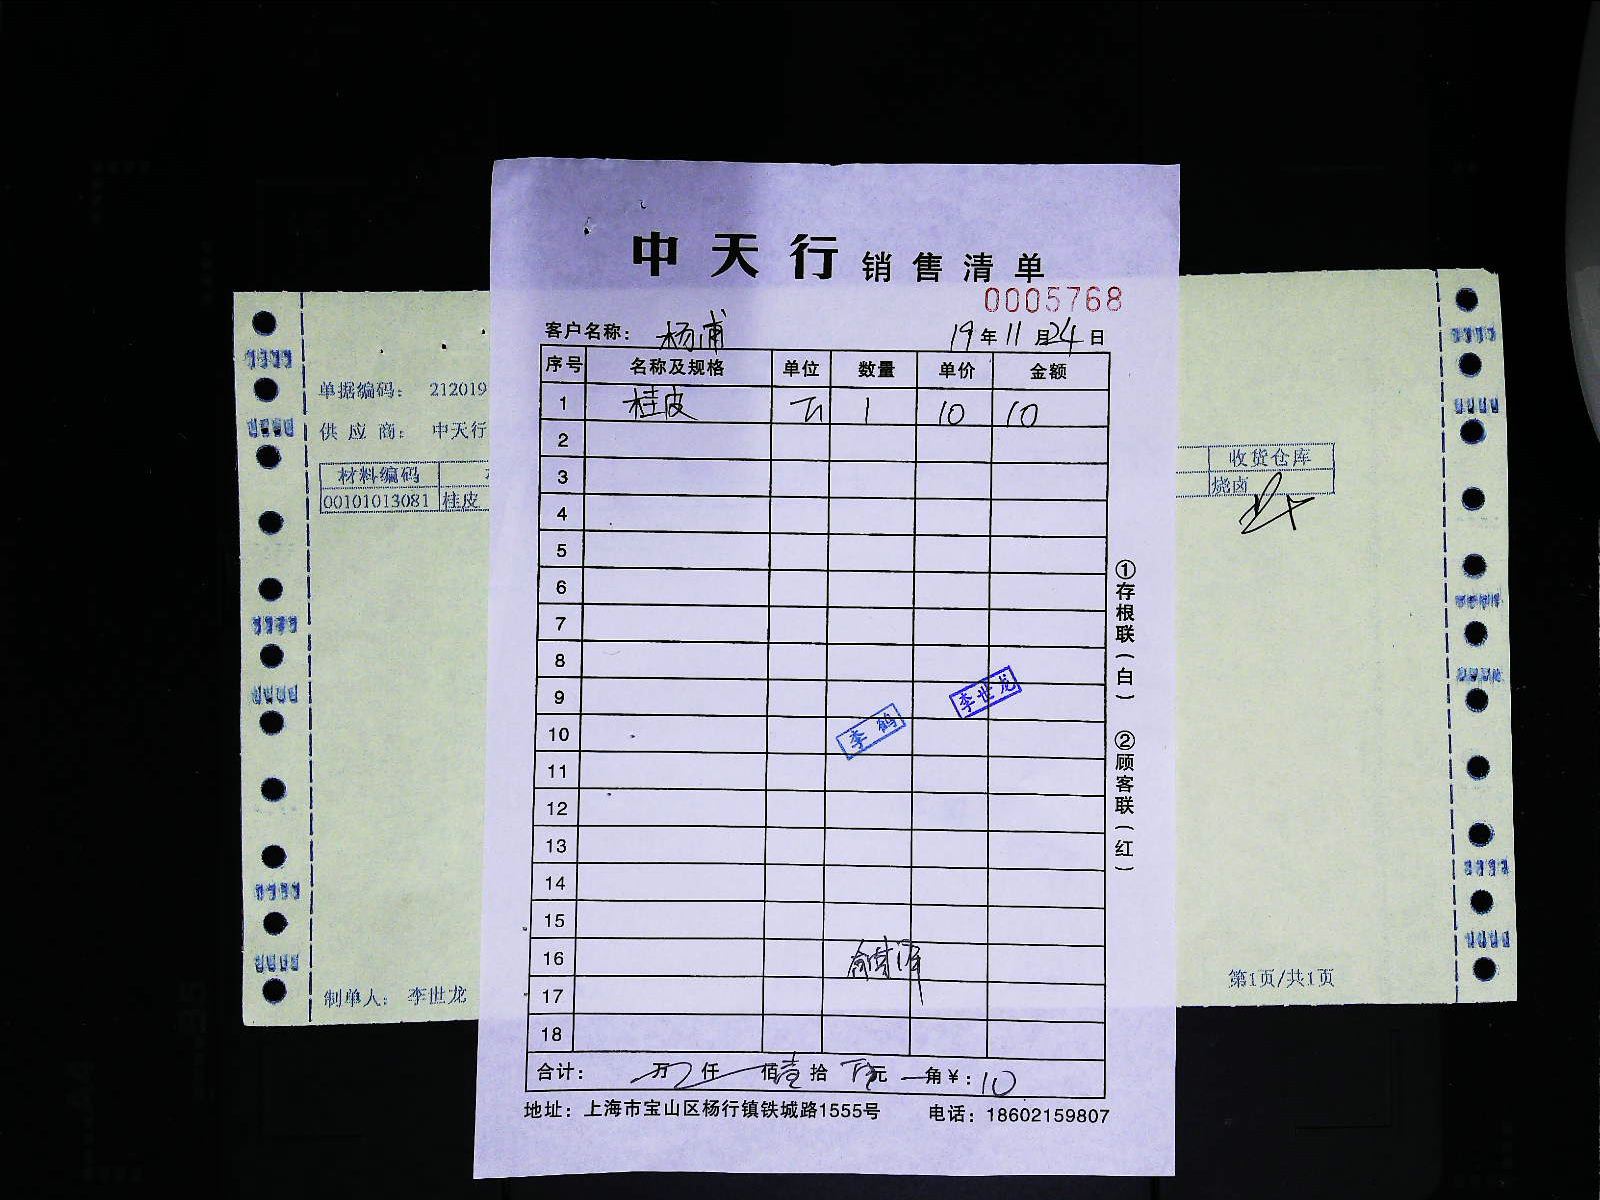 中天行 销售清单
0005768
客户名称： 杨浦 19年11月24日
序号 名称及规格 单位 数量 单价 金额
1 桂皮 1 10 10
2
3
4
5
6
7
8
9
10
11
12
13
14
15
16
17
18
李世龙
李鹤
合计： 万 仟 佰壹拾 元 角¥：10
地址：上海市宝山区杨行镇铁城路1555号 电话：18602159807
①存根联（白） ②顾客联（红）
单据编码： 212019
供应商： 中天行
材料编码
00101013081 桂皮
收货仓库
烧卤
制单人： 李世龙
第1页/共1页